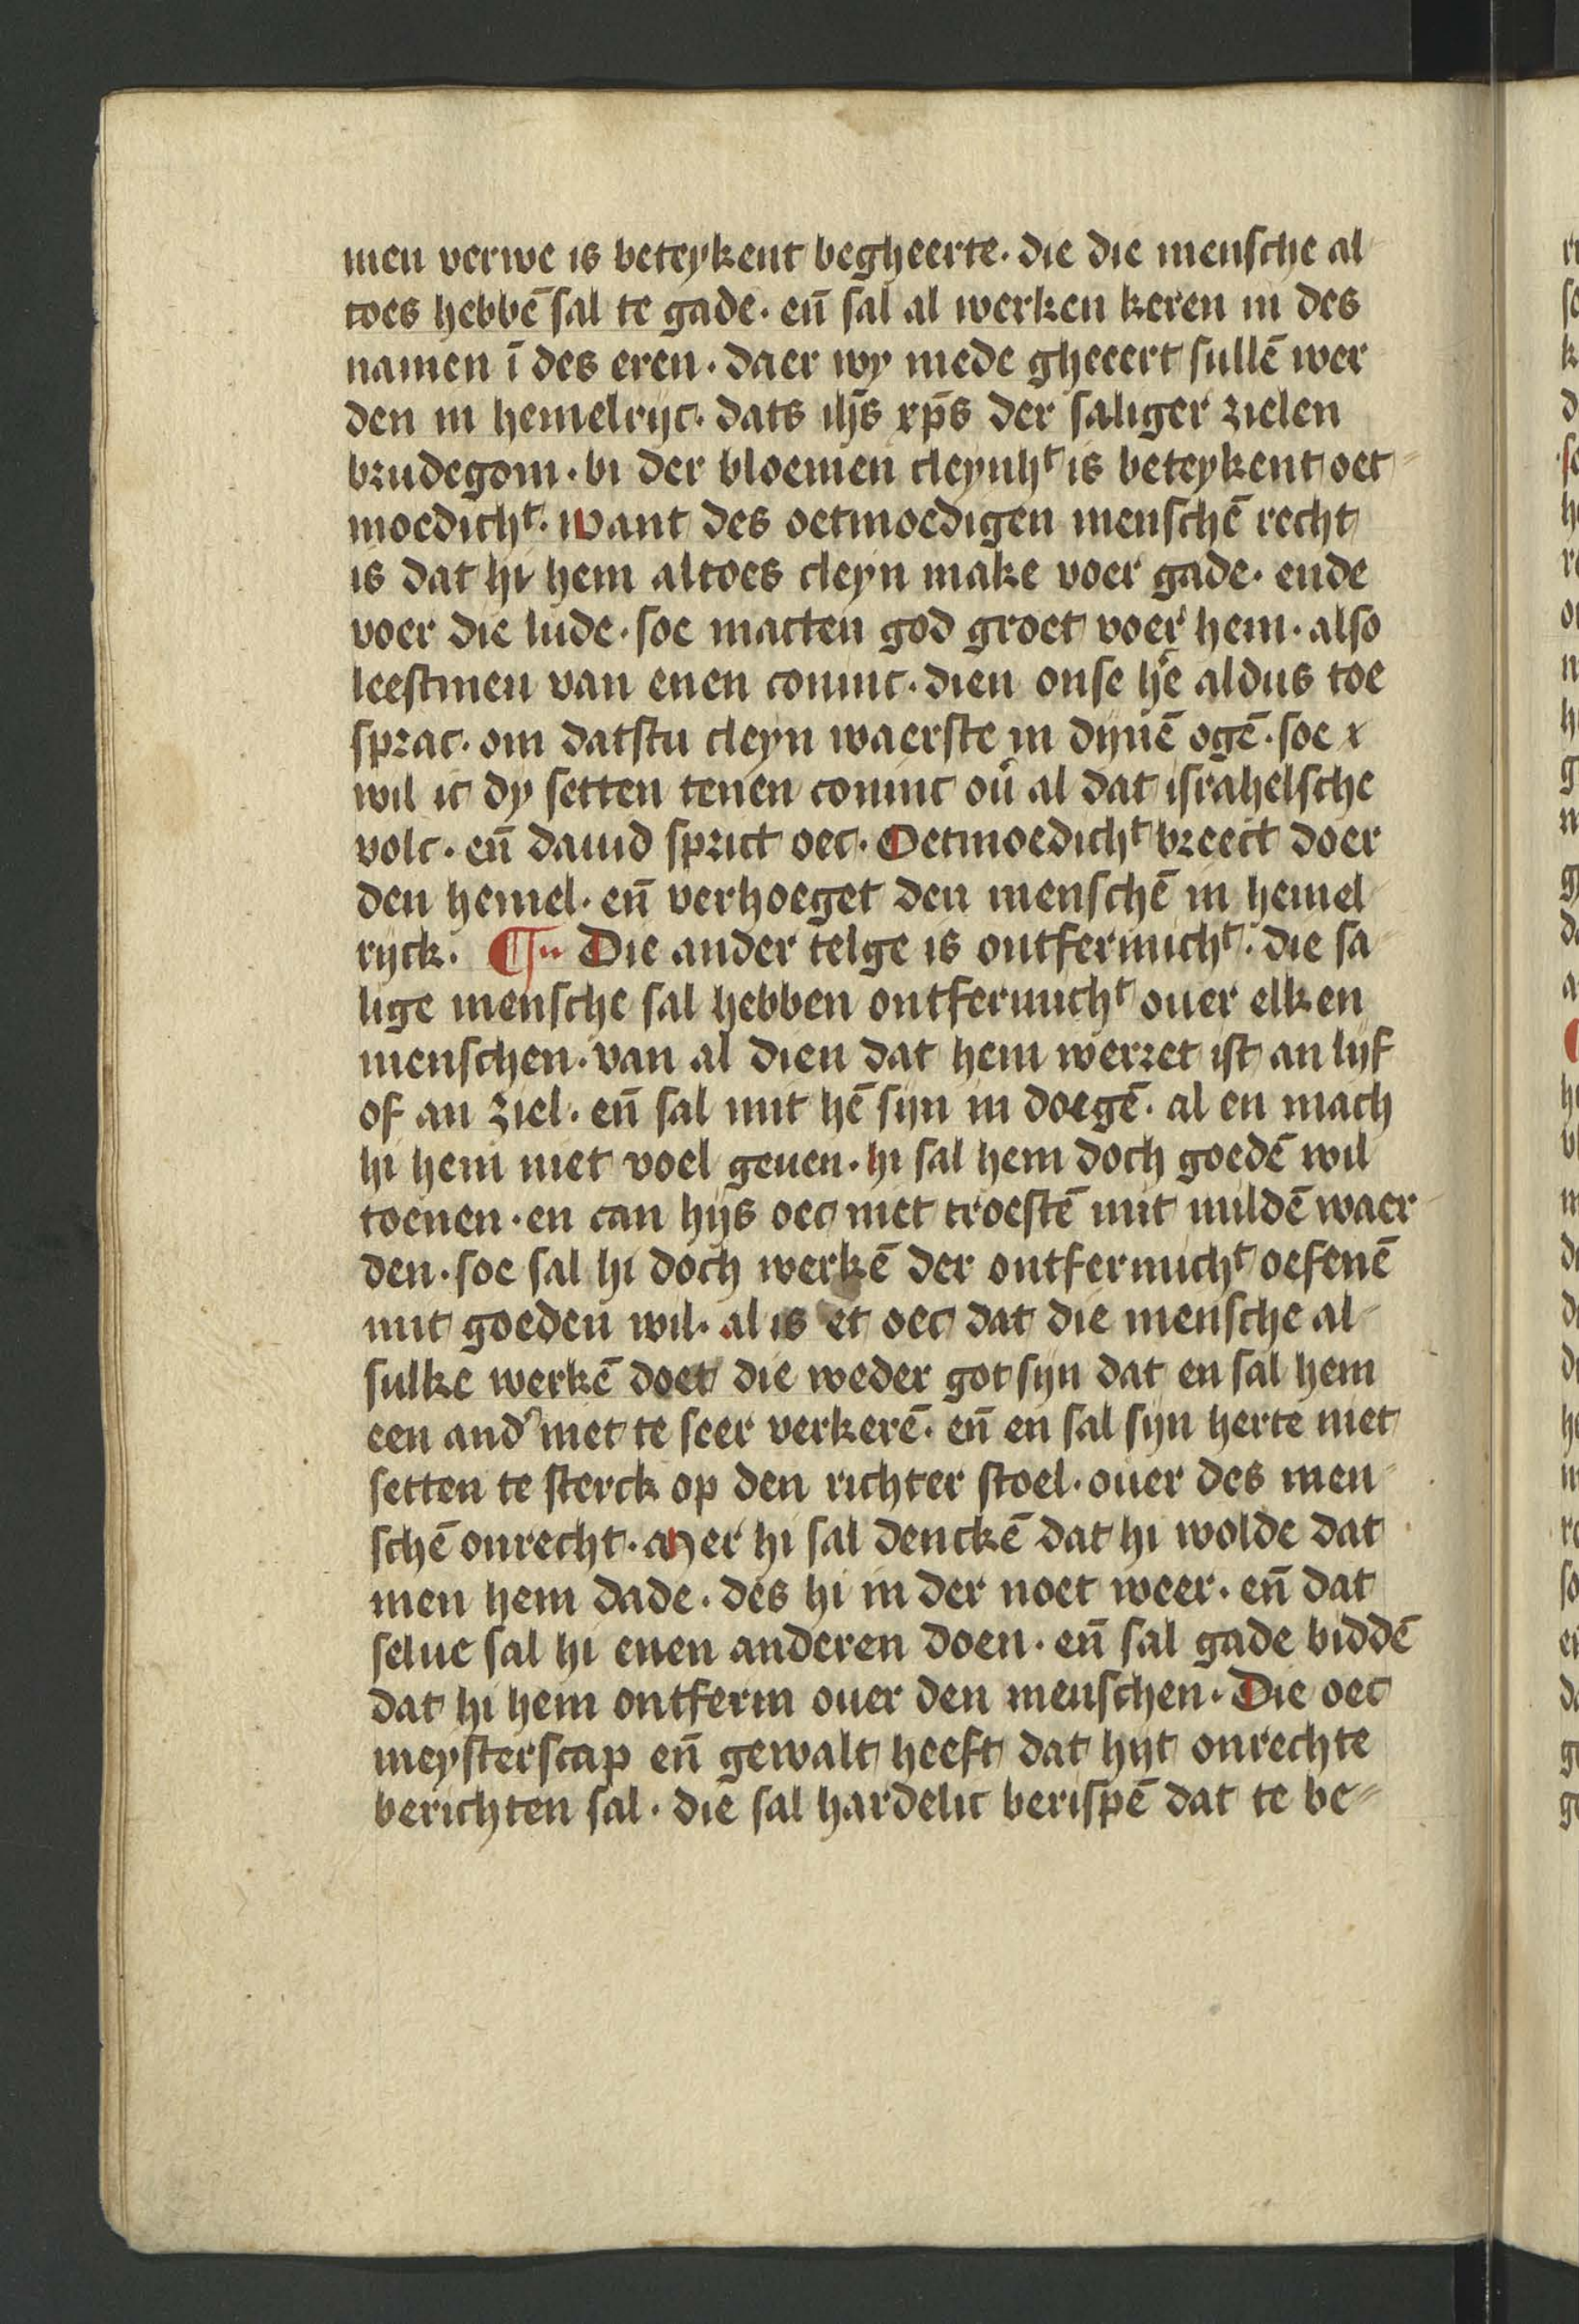 men verwe is beteykent begheerte. die die mensche al
toes hebbē sal te gade. en̄ sal al werken keren in des
namen ī des eren. daer wy mede gheeert sullē wer
den in hemelrijc. dats ihs̄ xps̄ der saliger zielen
brudegom. bi der bloemen cleynhᵗ is beteykent oet
moedichᵗ. want des oetmoedigen menschē recht
is dat hi hem altoes cleyn make voer gade. ende
voer die lude. soe macten god groet voer hem. also
leestmen van enen coninc. dien onse he᷑ aldus toe
sprac. om datstu cleyn waerste in dynē ogē. soe x
wil ic dy setten tenen coninc ou᷑ al dat israhelsche
volc. en̄ dauid sprict oec. Oetmoedichᵗ breect doer
den hemel. en̄ verhoeget den menschē in hemel
ryck. ¶ Die ander telge is ontfermichᵗ. die sa
lige mensche sal hebben ontfermichᵗ ouer elken
menschen. van al dien dat hem werret ist an lijf
of an ziel. en̄ sal mit hē sijn in doegē. al en mach
hi hem niet voel geuen. hi sal hem doch goedē wil
toenen. en can hijs oec niet troestē mit mildē waer
den. soe sal hi doch werkē der ontfermichᵗ oefenē
mit goeden wil. al is et oec dat die mensche al
sulke werkē doet die weder got sijn dat en sal hem
een and᷑ niet te seer verkerē. en̄ en sal sijn herte niet
setten te sterck op den richter stoel. ouer des men
schē onrecht. Mer hi sal denckē dat hi wolde dat
men hem dade. des hi in der noet weer. en̄ dat
selue sal hi enen anderen doen. en̄ sal gade biddē
dat hi hem ontferm ouer den menschen. Die oec
meysterscap en̄ gewalt heeft dat hijt onrechte
berichten sal. die sal hardelic berispē dat te be-